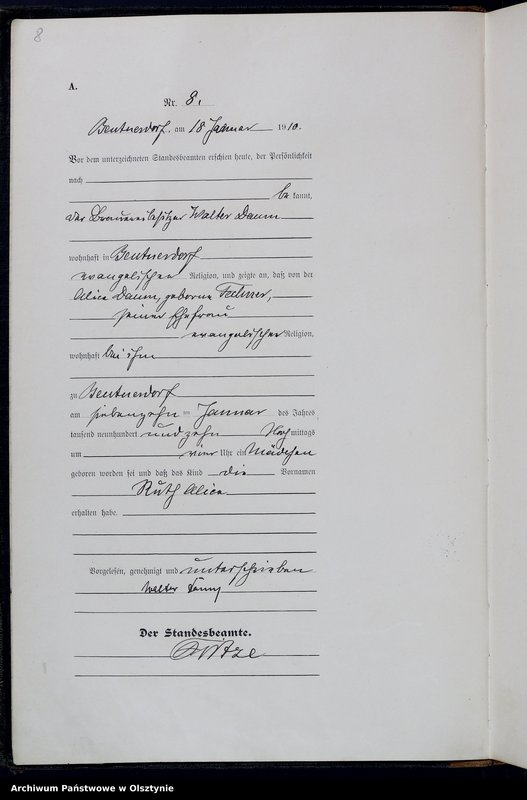 8
A.
Nr. 8.
Beutnerdorf, am 18 Januar 1910.
Vor dem unterzeichneten Standesbeamten erschien heute, der Persönlichkeit
nach
be kannt,
der Brauereibesitzer Walter Daum
wohnhaft in Beutnerdorf
evangelischer Religion, und zeigte an, daß von der
Alice Daum, geborne
seiner Ehefrau
evangelischer Religion,
wohnhaft bei ihm
zu Beutnerdorf
am siebenzehn ten Januar des Jahres
tausend neunhundert und zehn Nach mittags
um vier Uhr ein Mädchen
geboren worden sei und daß das Kind die Vornamen
Ruth Alice
erhalten habe.
Vorgelesen, genehmigt und unterschrieben
Walter Daum
Der Standesbeamte.
Archiwum Państwowe w Olsztynie